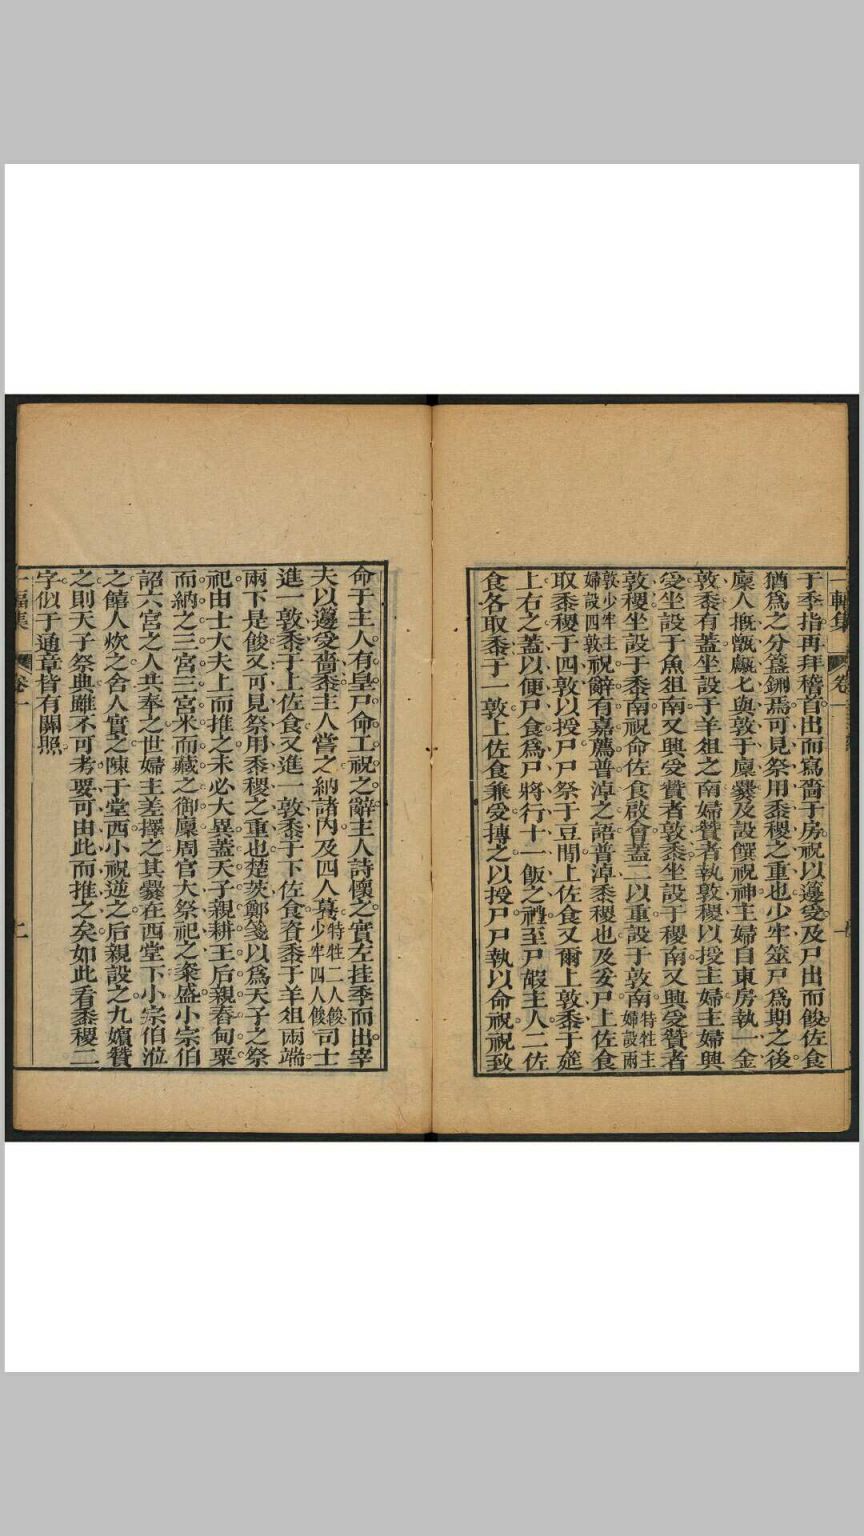 于季指再拜稽首出而寫嗇于房祝以籩受及尸出而餕佐食
猶為之分簋鉶焉可見祭用黍稷之重也少牢筮尸為期之後
廩人摡甑甗匕與敦于廩爨及設饌祝神主婦自東房執一金
敦黍有蓋坐設于羊俎之南婦贊者執敦稷以授主婦主婦興
受坐設于魚俎南又興受贊者敦黍坐設于稷南又興受贊者
敦稷坐設于黍南祝命佐食啟會蓋二以重設于敦南特牲主婦設兩
敦少牢主婦設四敦祝辭有嘉薦普淖之語普淖黍稷也及妥尸上佐食
取黍稷于四敦以授尸尸祭于豆間上佐食又爾上敦黍于筵
上右之蓋以便尸食為尸將行十一飯之禮至尸嘏主人二佐
食各取黍于一敦上佐食兼受摶之以授尸尸執以命祝祝致
命于主人有皇尸命工祝之辭主人詩懷之實左挂季而出宰
夫以籩受嗇黍主人嘗之納諸內及四人䭕特牲二人餕少牢四人餕司士
進一敦黍于上佐食又進一敦黍于下佐食資黍于羊俎兩端
兩下是餕又可見祭用黍稷之重也楚茨鄭箋以為天子之祭
祀由士大夫上而推之未必大異蓋天子親耕王后親舂甸粟
而納之三宮三宮米而藏之御廩周官大祭祀之粢盛小宗伯
詔六宮之人共奉之世婦主差擇之其爨在西堂下小宗伯涖
之饎人炊之舍人實之陳于堂西小祝逆之后親設之九嬪贊
之則天子祭典雖不可考要可由此而推之矣如此看黍稷二
字似于通章皆有關照
卷一